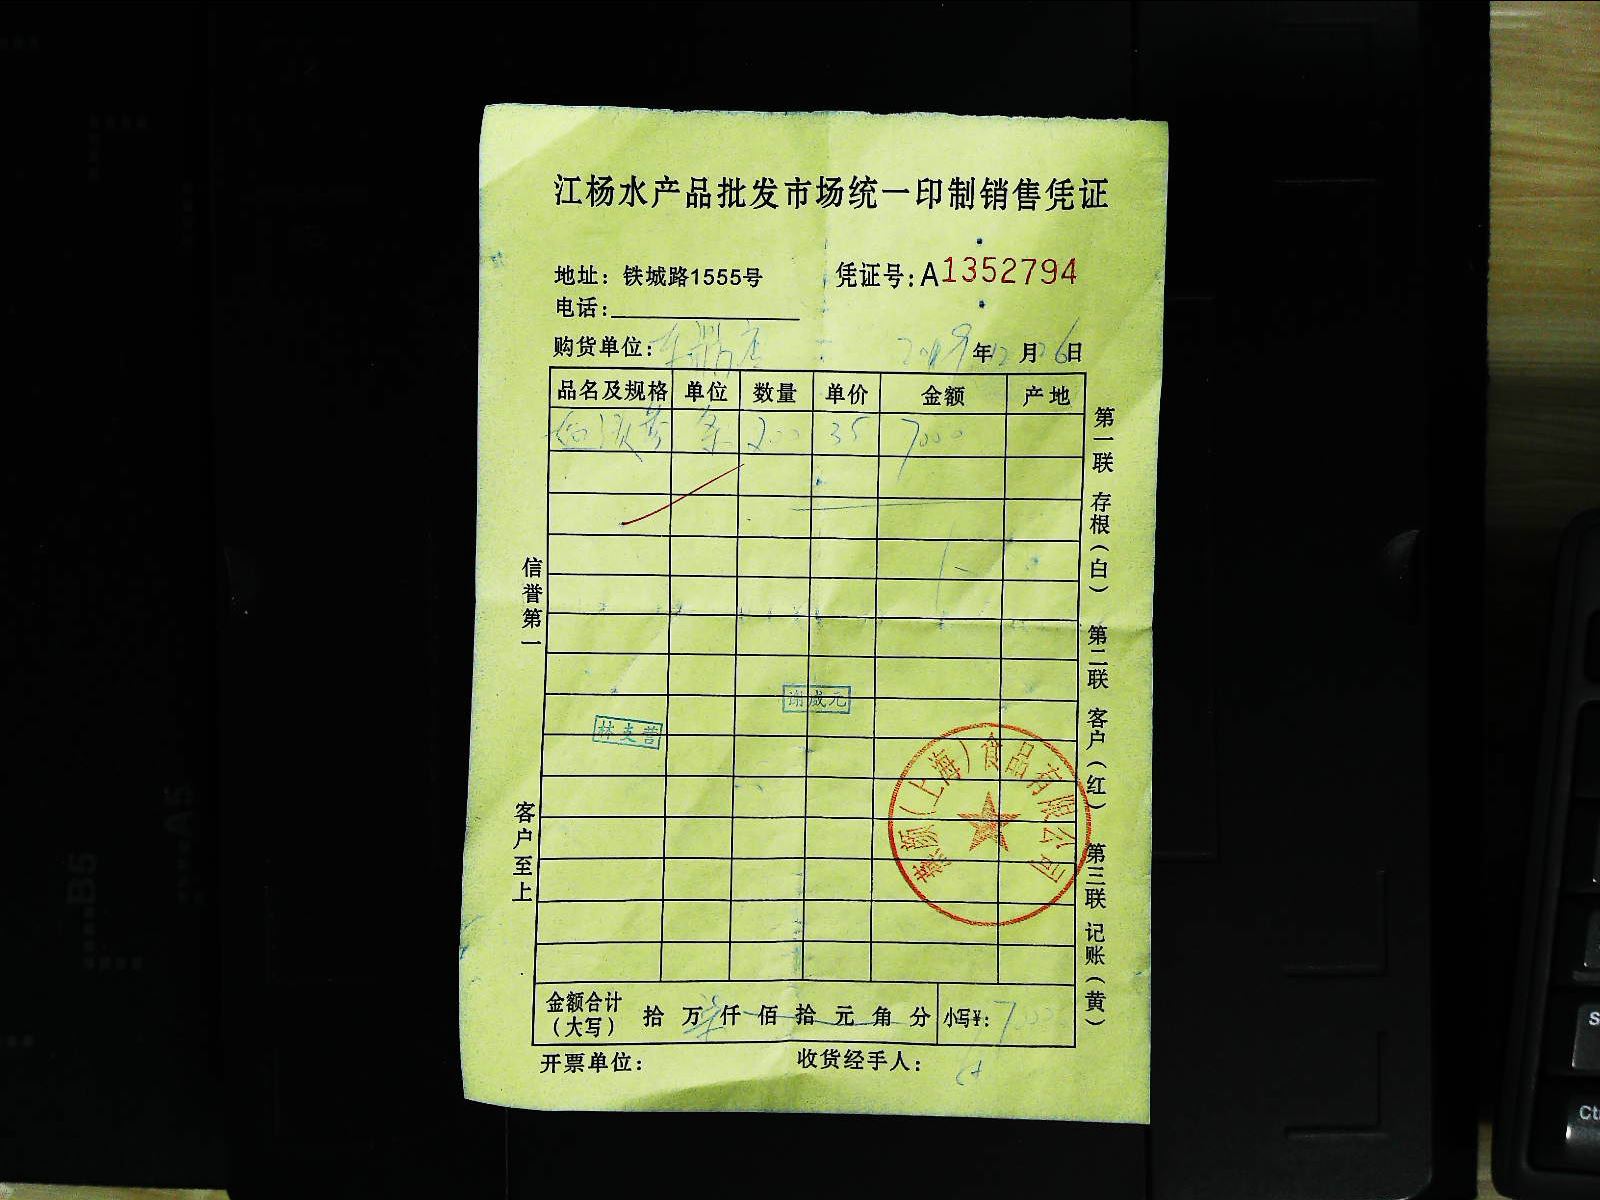 江杨水产品批发市场统一印制销售凭证
地址：铁城路1555号 凭证号：A1352794
电话：
购货单位： 2019年12月26日
品名及规格 单位 数量 单价 金额 产地
条 200 35 7000
信誉第一
客户至上
第一联 存根（白） 第二联 客户（红） 第三联 记账（黄）
谢成元
林支善
颜（上海）食品有限公司
金额合计（大写） 拾 万 柒 仟 佰 拾 元 角 分 小写¥：7000
开票单位： 收货经手人：